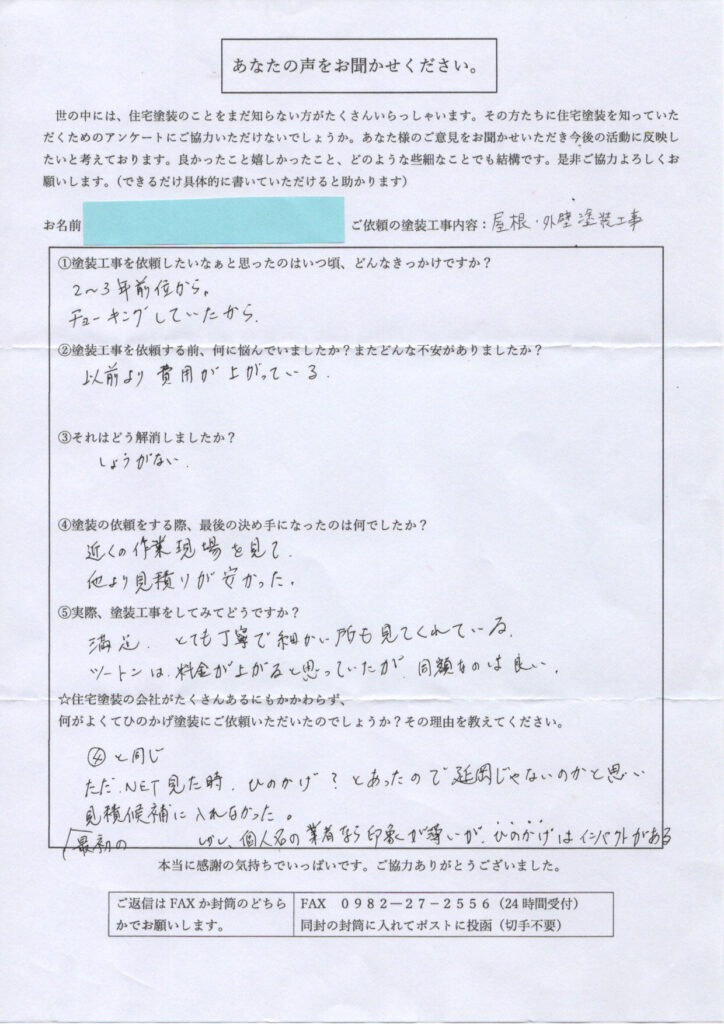 あなたの声をお聞かせください。
世の中には、住宅塗装のことをまだ知らない方がたくさんいらっしゃいます。その方たちに住宅塗装を知っていた
だくためのアンケートにご協力いただけないでしょうか。あなた様のご意見をお聞かせいただき今後の活動に反映し
たいと考えております。良かったこと嬉しかったこと、どのような些細なことでも結構です。是非ご協力よろしくお
願いします。(できるだけ具体的に書いていただけると助かります)
お名前 ご依頼の塗装工事内容：屋根・外壁塗装工事
①塗装工事を依頼したいなぁと思ったのはいつ頃、どんなきっかけですか？
2〜3年前位から。
チョーキングしていたから。
②塗装工事を依頼する前、何に悩んでいましたか？またどんな不安がありましたか？
以前より費用が上がっている。
③それはどう解消しましたか？
しょうがない。
④塗装の依頼をする際、最後の決め手になったのは何でしたか？
近くの作業現場を見て。
他より見積りが安かった。
⑤実際、塗装工事をしてみてどうですか？
満足。とても丁寧で細かい所も見てくれている。
ツートンは、料金が上がると思っていたが、同額なのは良い。
☆住宅塗装の会社がたくさんあるにもかかわらず、
何がよくてひのかげ塗装にご依頼いただいたのでしょうか？その理由を教えてください。
④と同じ
ただ、NET見た時、ひのかげ？とあったので延岡じゃないのかと思い
見積候補に入れなかった。
最初の しかし、個人名の業者なら印象が薄いが、ひのかげはインパクトがある
本当に感謝の気持ちでいっぱいです。ご協力ありがとうございました。
ご返信はFAXか封筒のどちら
かでお願いします。
FAX 0982－27－2556（24時間受付）
同封の封筒に入れてポストに投函（切手不要）